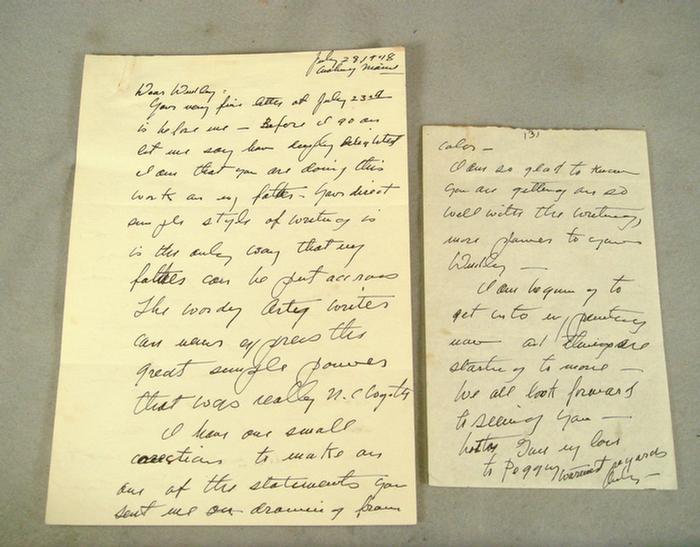 July 28 1948
Cushing Maine
Dear Wuelky:
Your very fine letter of July 23rd
is before me – Before I go on
let me say how deeply delighted
I am that you are doing this
work on my father – Your direct
simple style of writing is
is the only way that my
fathers can be put across
The wordy Artey writer
can never express the
great simple power
that was really N.C Wyeth
I have one small
corrections to make on
one of the statements you
sent me on drawing from
(3)
color –
I am so glad to know
you are getting on so
well with the writing,
more power to you
–
I am begining to
get into my painting
now and things are
starting to move –
We all look forward
to seeing you –
Give my love
to Peggy warmest regards
Andy –